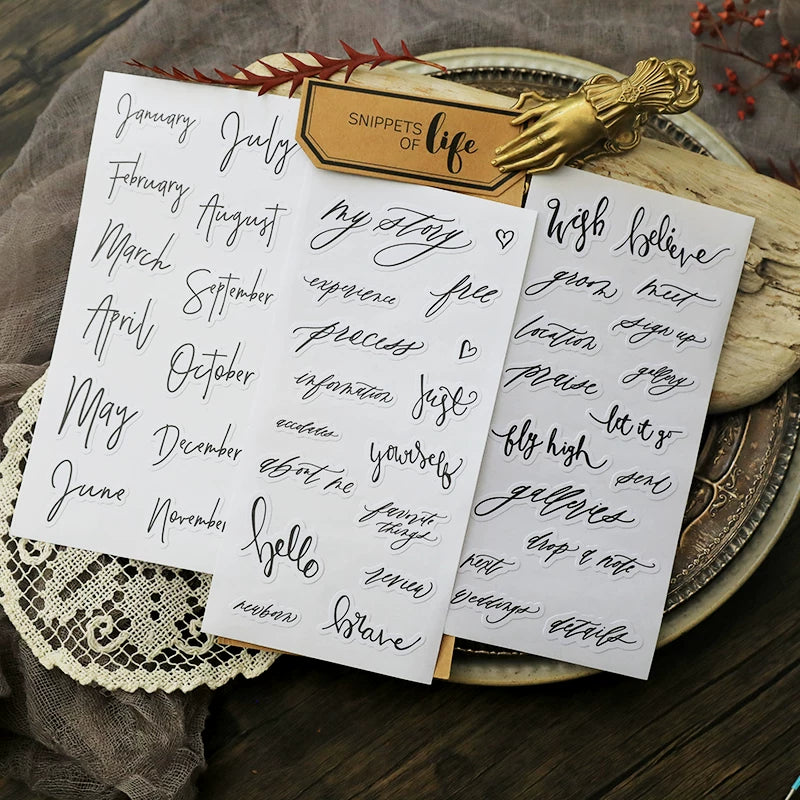 SNIPPETS
OF life
January
July
February
August
March
September
April
October
May
December
June
November
my story
experience
free
process
information
just
accolades
yourself
about me
favorite
things
hello
review
newborn
brave
wish
believe
groom
meet
location
sign up
praise
gallery
let it go
fly high
send
galleries
drop a note
next
weddings
details